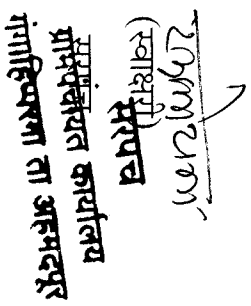 (स्वाक्षरी)
सरपंच
सरपंच
ग्रामपंचायत कार्यालय
गंगाहिप्परगा ता अहमदपूर